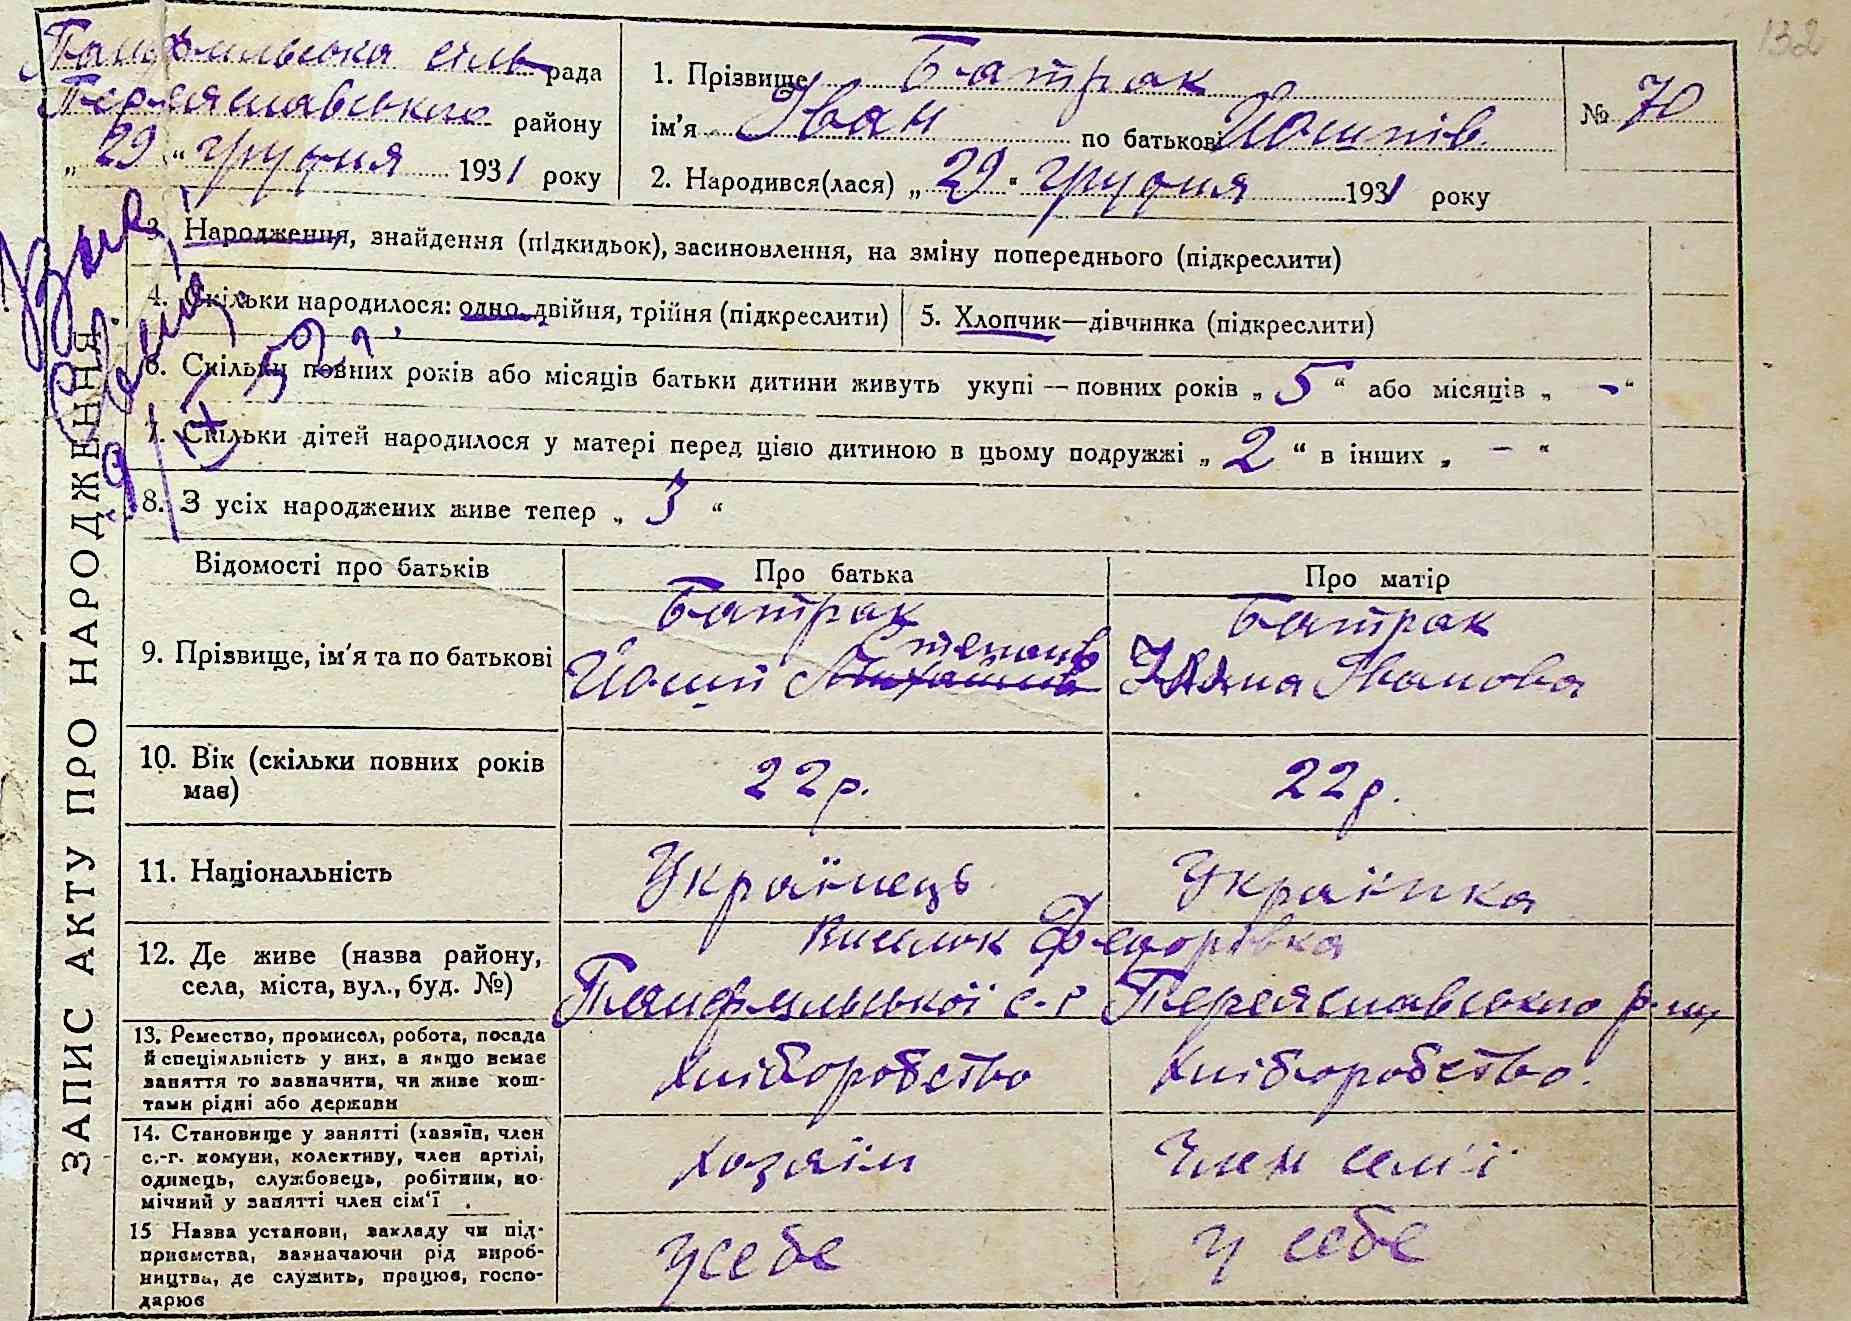 132
Панфильська сіль рада
Переяславського району
„29“ грудня 1931 року
1. Прізвище Батрак
ім'я Іван по батькові Йосипів.
2. Народився(лася) „29“ грудня 1931 року
№ 70
3. Народження, знайдення (підкидьок), засиновлення, на зміну попереднього (підкреслити)
4. Скільки народилося: одно, двійня, трійня (підкреслити)
5. Хлопчик—дівчинка (підкреслити)
6. Скільки повних років або місяців батьки дитини живуть укупі — повних років „5“ або місяців „-“
7. Скільки дітей народилося у матері перед цією дитиною в цьому подружжі „2“ в інших „-“
8. З усіх народжених живе тепер „3“
ЗАПИС АКТУ ПРО НАРОДЖЕННЯ.
Відомості про батьків
Про батька
Про матір
9. Прізвище, ім'я та по батькові
Батрак
Степанів
Йосип
Батрак
Іванова
10. Вік (скільки повних років має)
22р.
22р.
11. Національність
Українець
Українка
12. Де живе (назва району,
села, міста, вул., буд. №)
Виселок Федорівка
Панфильської с-р Переяславського р-ну
13. Ремество, промисел, робота, посада
й спеціяльність у них, а якщо немає
заняття то зазначити, чи живе кош-
тами рідні або держави
Хліборобство
Хліборобство.
14. Становище у занятті (хазяїн, член
с.-г. комуни, колективу, член артілі,
одинець, службовець, робітник, по-
мічний у занятті член сім'ї
Хозяїн
Член семї
15 Назва установи, закладу чи під-
приємства, зазначаючи рід вироб-
ництва, де служить, працює, госпо-
дарює
у себе
у себе